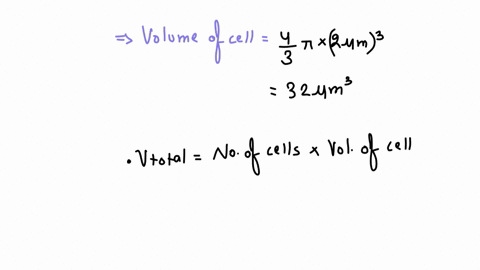 ⇒ Volume of cell = 4/3 π × (2 μm)³
= 32 μm³
• Vtotal = No. of cells × Vol. of cell